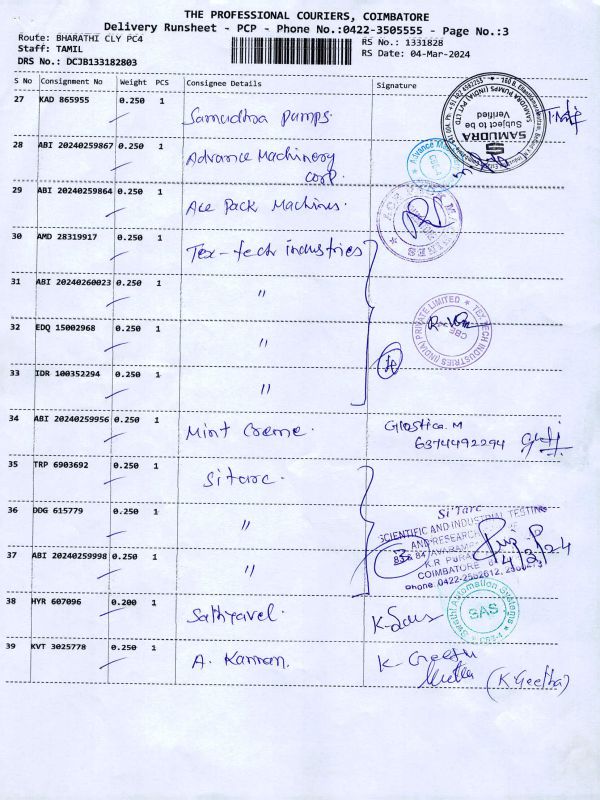 THE PROFESSIONAL COURIERS, COIMBATORE
Delivery Runsheet - PCP - Phone No.:0422-3505555 - Page No.:3
Route: BHARATHI CLY PC4
RS No.: 1331828
Staff: TAMIL
RS Date: 04-Mar-2024
DRS No.: DCJB133182803
S No Consignment No Weight PCS Consignee Details Signature
27 KAD 865955 0.250 1 Samudhra pumps.
SAMUDRA
Subject to be
Verified
28 ABI 20240259867 0.250 1 Advance Machinery
corp.
29 ABI 20240259864 0.250 1 Ace Pack Machines.
30 AMD 28319917 0.250 1 Tex-tech industries
31 ABI 20240260023 0.250 1 "
TEX-TECH INDUSTRIES (INDIA) PRIVATE LIMITED
CBE
32 EDQ 15002968 0.250 1 "
33 IDR 100352294 0.250 1 "
34 ABI 20240259956 0.250 1 Mint Creme. Glostica.M
6374492294
35 TRP 6903692 0.250 1 Sitarc.
36 DDG 615779 0.250 1 "
Si'Tarc
SCIENTIFIC AND INDUSTRIAL TESTING
AND RESEARCH
K.R. PURAM
COIMBATORE
Phone:0422-2562612,
4/3/24
37 ABI 20240259998 0.250 1 "
38 HYR 607096 0.200 1 Sathyavel.
Swathi Automation Systems
SAS
39 KVT 3025778 0.250 1 A. Kannan. K-Geetha
(K.Geetha)